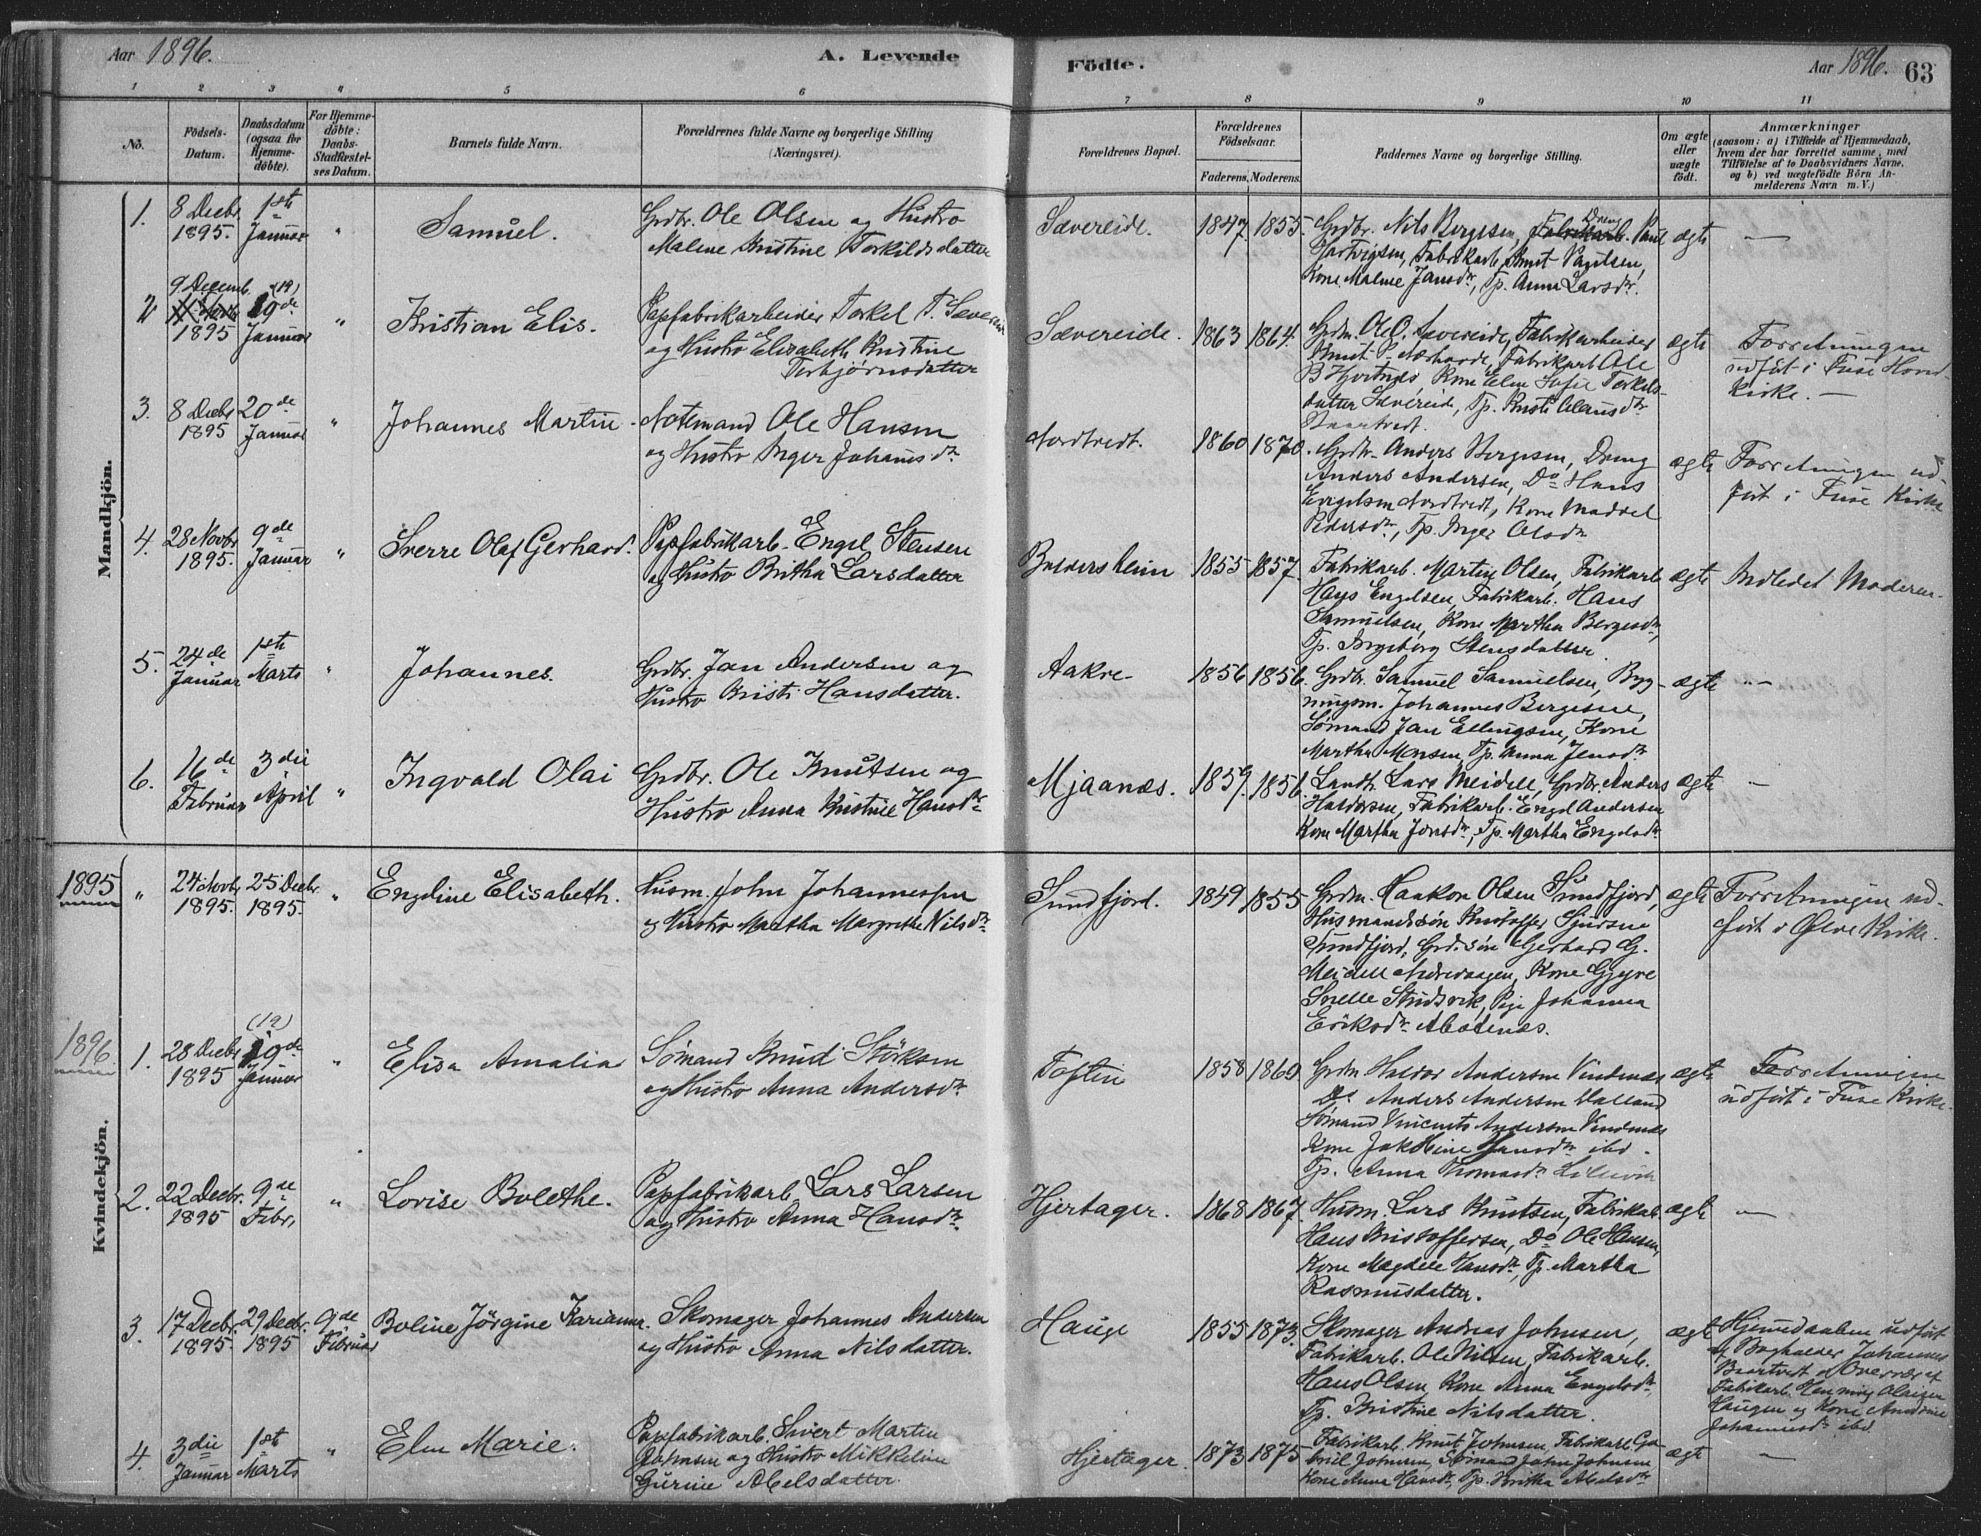 Aar 1896.
A. Levende
Födte.
Aar 1896. 63
1 2 3 4 5 6 7 8 9 10 11
No.
Födsels-
Datum.
Daabsdatum
(ogsaa for
Hjemme-
döbte).
For Hjemme-
döbte:
Daabs-
Stadfæstel-
ses Datum.
Barnets fulde Navn.
Forældrenes fulde Navne og borgerlige Stilling
(Næringsvei).
Forældrenes Bopæl.
Forældrenes
Födselsaar.
Faderens. Moderens.
Faddernes Navne og borgerlige Stilling.
Om ægte
eller
uægte
födt.
Anmærkninger
(saasom: a) i Tilfælde af Hjemmedaab,
hvem der har forrettet samme, med
Tilföielse af to Daabsvidners Navne,
og b) ved uægtefödte Börn An-
melderens Navn m. V.)
Mandkjön.
1.
8 Decbr
1895.
1ste
Januar
"
Samuel.
Grdbr. Ole Olsen og Hustro
Malene Kristine Torkildsdatter
Sævereide.
1847. 1855.
Grdbr. Nils Bergesen, Dreng Paul
Hartvigsen, Fabrikarb. Knut Paulsen,
Kone Malene Jansdr, Tp. Anna Larsdr.
ægte
—
2
9 Decemb.
1895
(19)
19de
Januar
"
Kristian Elis.
Papfabrikarbeider Torkel T. Sævereide
og Hustro Elisabeth Kristine
Torbjørnsdatter
Sævereide.
1863 1864.
Grdm. Ole O. Sævereide, Fabrikarbeider
Knut P. , Fabrikarb Ole
B Hjortnæs, Kone Elen Sofie Torkils-
datter Sævereide, Tp. Kristi Clausdr
ægte
Forretningen
udført i Fuse Hoved
Kirke. —
3.
8 Decbr
1895
20de
Januar
"
Johannes Martin.
Notemand Ole Hansen
og Hustro Inger Johannesdr.
Nordtvedt.
1860 1870.
Grdbr. Anders Bergesen, Dreng
Anders Andersen, Do Hans
Engelsen Nordtvedt, Kone Madsel
Pedersdr, Tp. Inger Olsdr
ægte
Forretningen ud-
ført i Fuse Kirke
4.
28 Novbr
1895.
9de
Januar
"
Sverre Olaf Gerhard.
Papfabrikarb. Engel Stensen
og Hustro Britha Larsdatter
Baldersheim
1855 1857.
Fabrikarb. Martin Olsen, Fabrikarb
Hans Engelsen, Fabrikarb. Hans
Samuelsen, Kone Martha Bergesdr,
Tp. Ingeborg Stensdatter
ægte
Indledet Moderen.
5.
24de
Januar
1ste
Marts
"
Johannes.
Grdbr. Jan Andersen og
Hustro Kristi Hansdatter.
Aakre
1856 1856.
Grdbr. Samuel Samuelsen, Byg-
ningsm. Johannes Bergesen,
Sømand Jan Ellingsen, Kone
Martha Monsen, Tp. Anna Jensdr
ægte
"—
6.
16de
Februar
3die
April
"
Ingvald Olai
Grdbr. Ole Knutsen og
Hustro Anna Kristine Hansdr
Mjaanæs.
1859. 1856.
Landh. Lars Meidell, Grdbr. Anders
Haldorsen, Fabrikarb. Engel Andersen
Kone Martha Jonsdr, Tp. Martha Engelsdr
ægte
—
Kvindekjön.
1895
"
24 Novbr
1895.
25 Decbr.
1895.
"
Engeline Elisabeth.
Husm. John Johannessen
og Hustro Martha Margrethe Nilsdr
Sundfjord.
1849 1855
Grdm. Haakon Olsen Sundfjord,
Husmandssøn Kristoffer Sjursen
Sundfjord, Grd.søn Gerhard G.
Meidell Nedrevaagen, Kone Gjøre
Snelle Studsvik, Pige Johanna
Eriksdr
ægte
Forretningen ud-
ført i Ølve Kirke.
1896.
1.
28 Decbr
1895
(19)
19de
Januar
"
Elisa Amalia
Sømand Knud Størksen
og Hustro Anna Andersdr
Toften
1858 1860
Grdm Haldor Andersen Vindenæs
Do Anders Andersen Valland
Sømand Vincents Andersen Vindenæs
Kone Jakobine Hansdr ibd.
Tp. Anna Thomasdr
ægte
Forretningen
udført i Fuse Kirke.
2.
22 Decbr.
1895
9de
Febr,
"
Lovise Bolethe.
Papfabrikarb. Lars Larsen
og Hustro Anna Hansdr.
Hjertager.
1868 1867.
Husm. Lars Knutsen, Fabrikarb
Hans Kristoffersen, Do Ole Hansen,
Kone Magdele Hansdr, Tp. Martha
Rasmusdatter.
ægte
—
3.
17 Decbr.
1895.
29 Decbr.
1895
9de
Februar
Boline Jörgine Karianna.
Skomager Johannes Andersen
og Hustro Anna Nilsdatter.
Hauge
1855 1873.
Skomager Andreas Johnsen,
Fabrikarb. Ole Nilsen, Fabrikarb.
Hans Olsen, Kone Anna Engelsdr
Tp. Kristine Nilsdatter.
ægte
Hjemedaaben udført
af Bogholder Johannes
Baartvet i Overvær af
Fabrikarb. Henning Olaisen
Haugen og Kone
Johannesdr ibd
4.
3die
Januar
1ste
Marts
"
Elen Marie.
Papfabrikarb. Sivert Martin
Johnsen og Hustro Mikkeline
Gurine Abelsdatter
Hjertager.
1873 1875
Fabrikarb. Knut Johnsen, Fabrikarb Ga-
briel Johnsen, Sømand John Johnsen
Kone Anna Hansdr, Tp. Britha Abelsdr
ægte
—